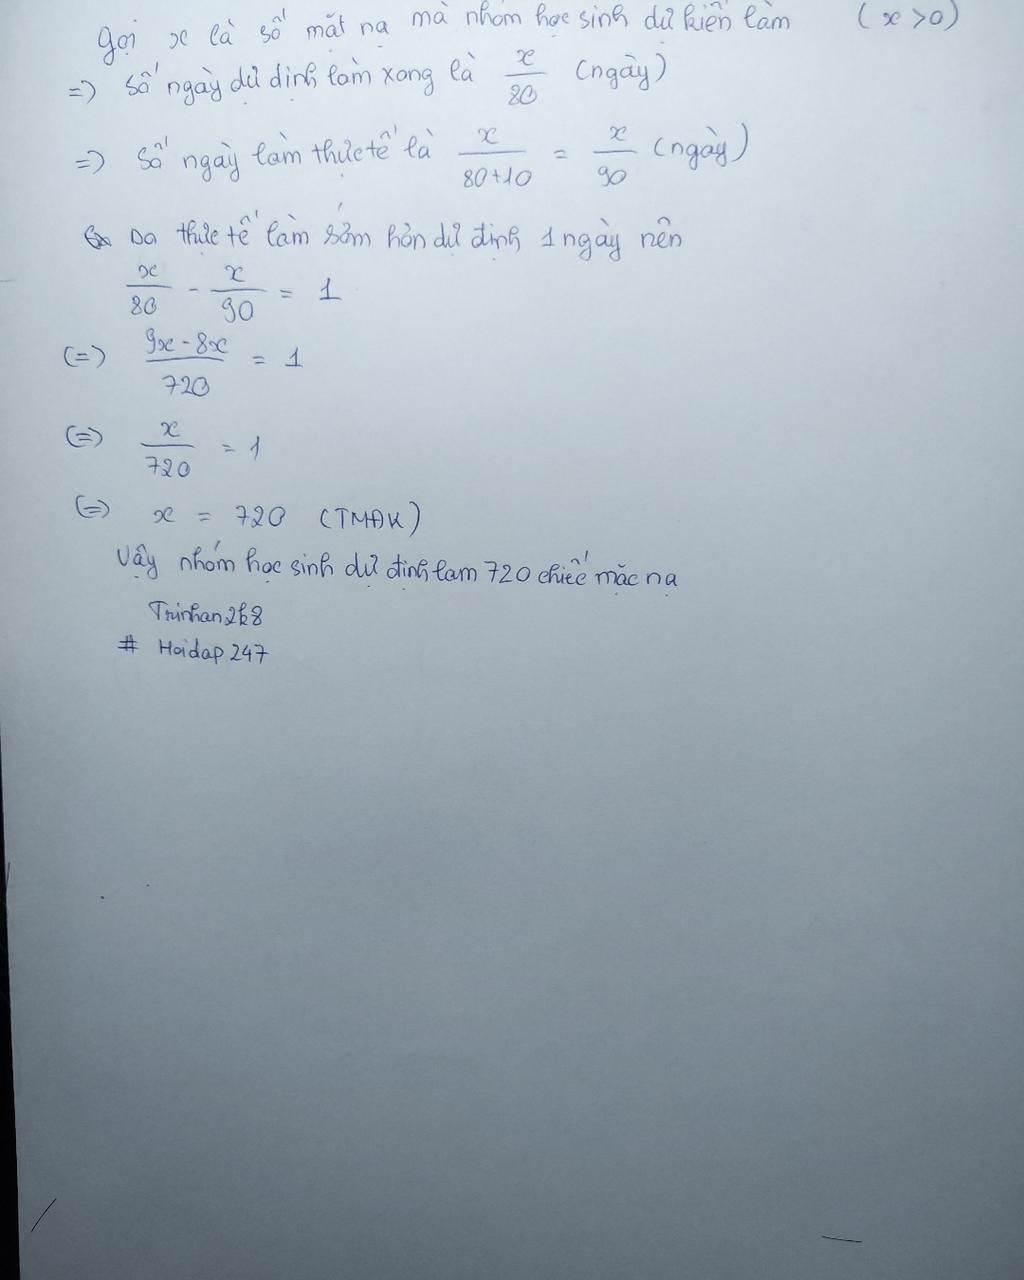 Gọi x là số mặt nạ mà nhóm học sinh dự kiến làm (x >0)
=> Số ngày dự định làm xong là x/80 (ngày)
=> Số ngày làm thực tế là x/(80+10) = x/90 (ngày)
Do thực tế làm sớm hơn dự định 1 ngày nên
x/80 - x/90 = 1
(=) (9x - 8x)/720 = 1
(=) x/720 = 1
(=) x = 720 (TMĐK)
Vậy nhóm học sinh dự định làm 720 chiếc mặc nạ
Trinhan2k8
# Hoidap247